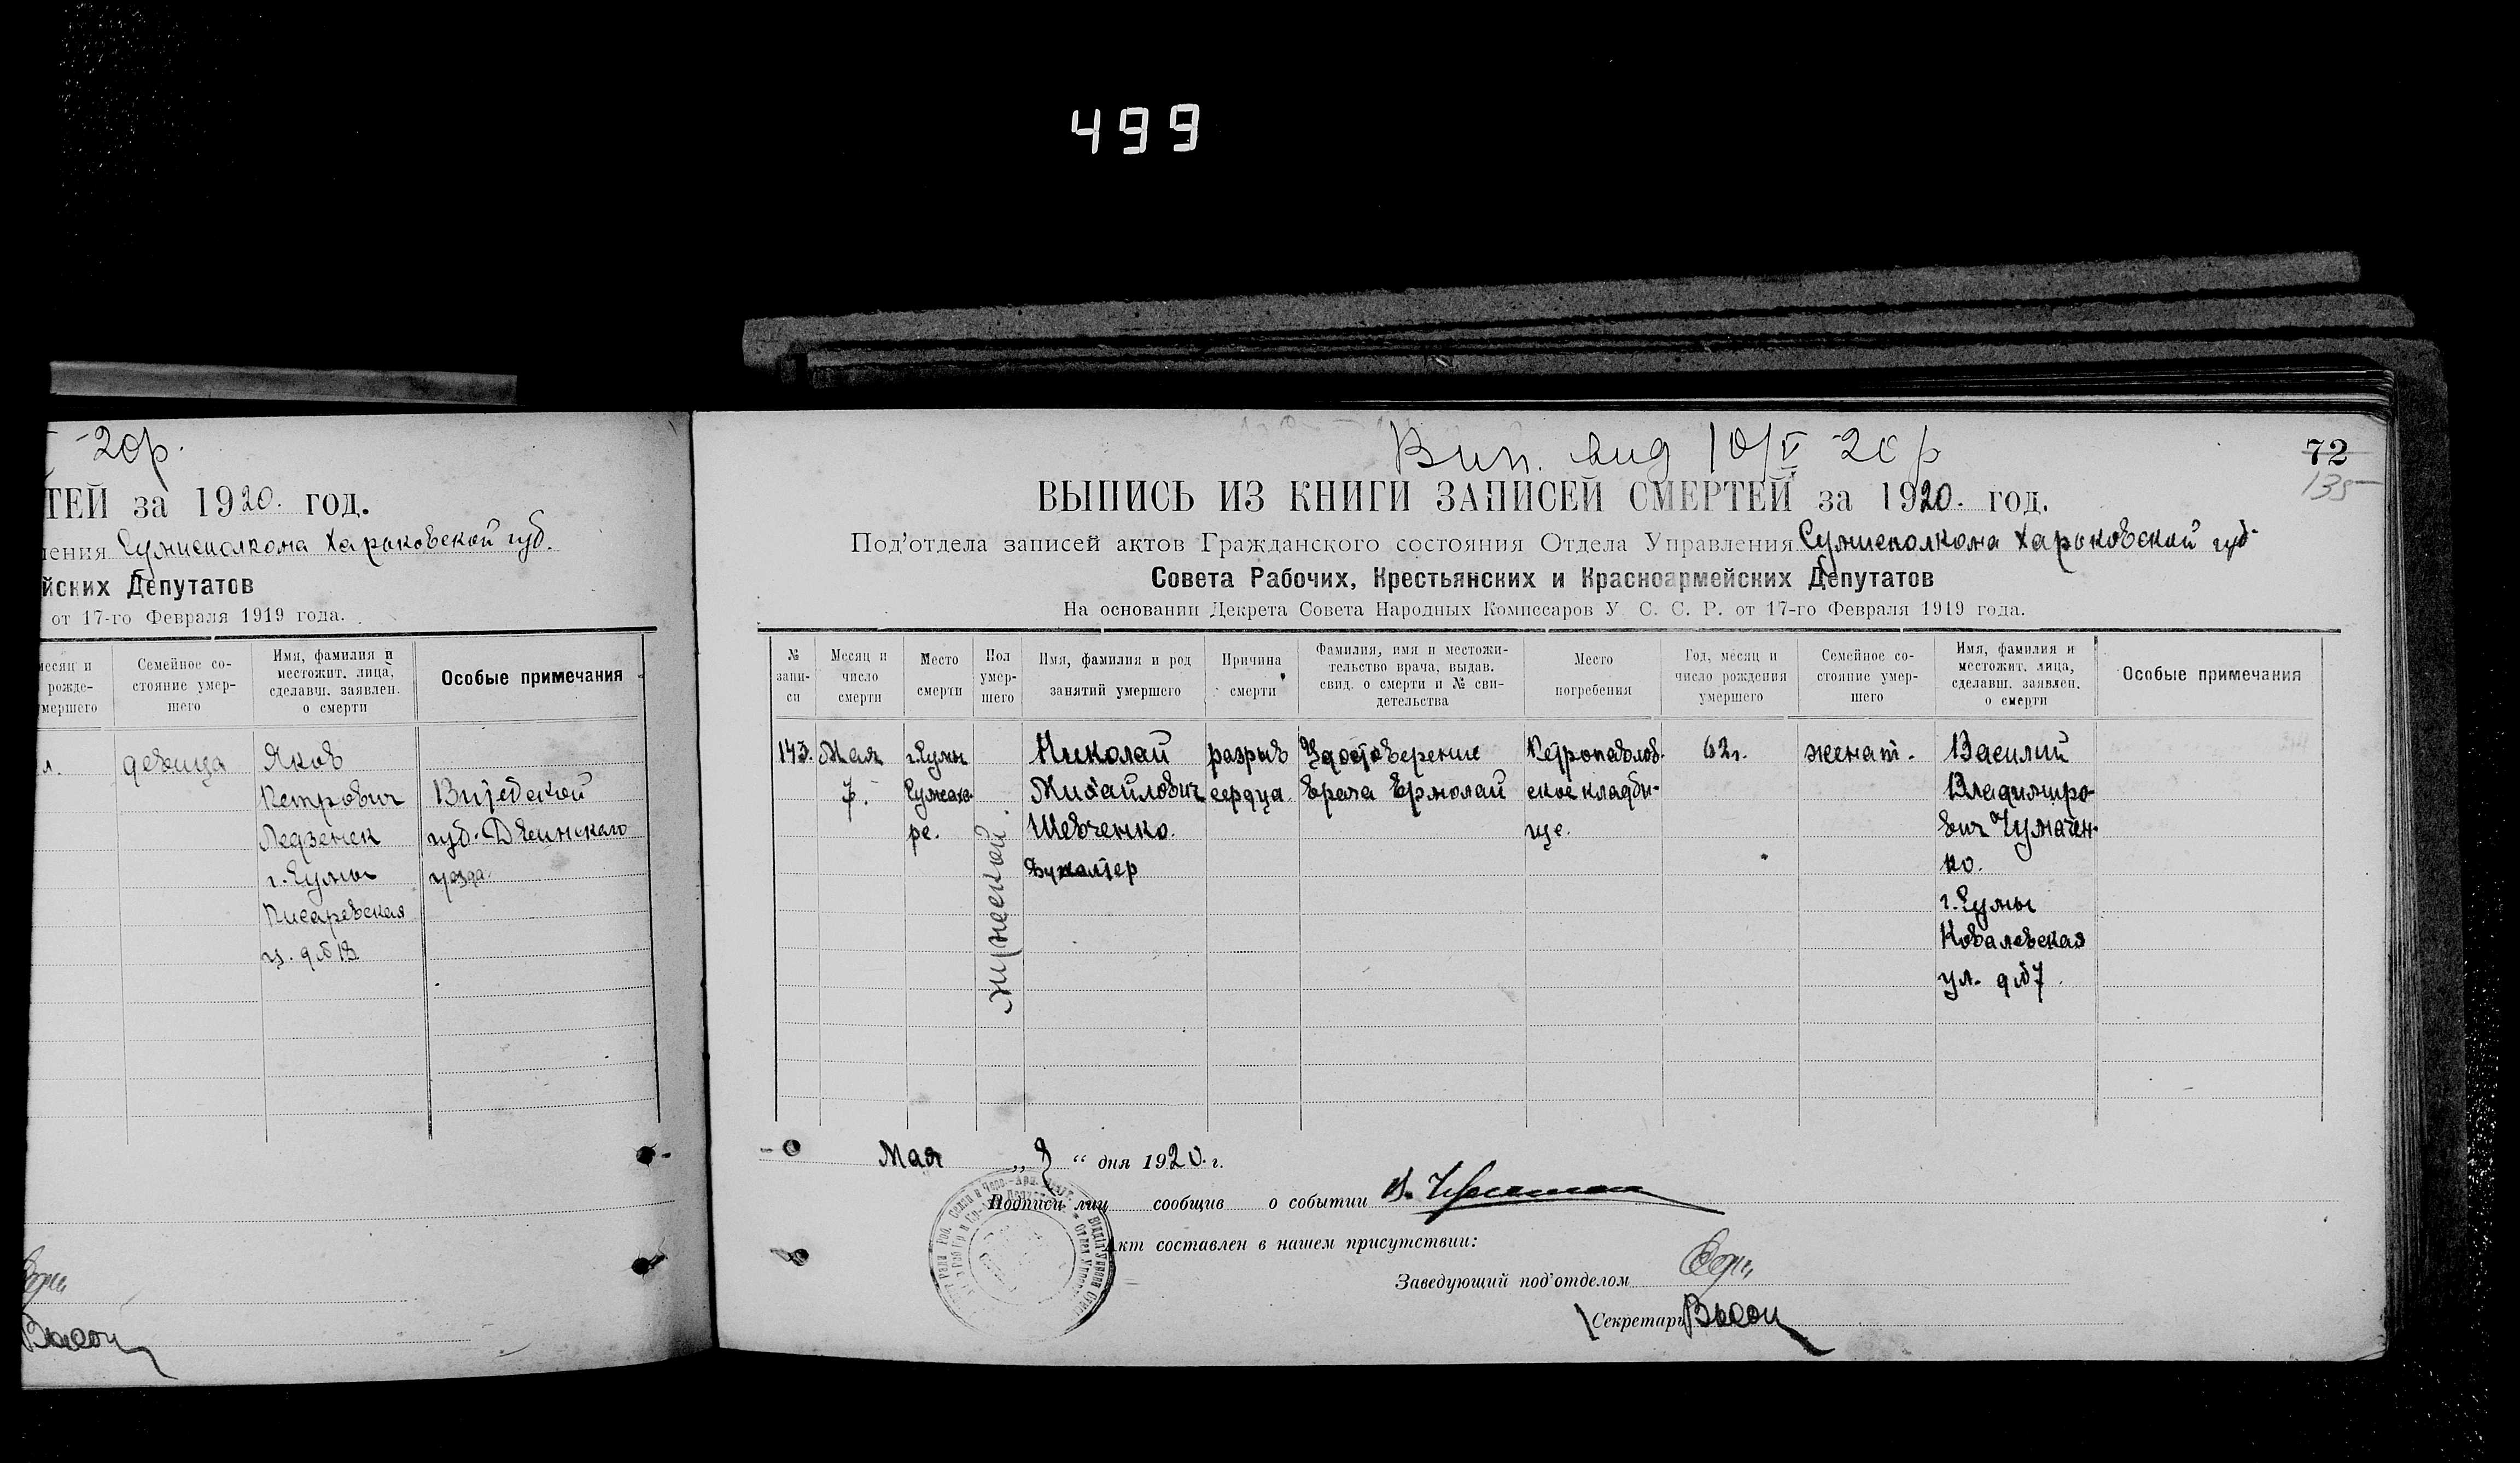 499
-20р.
ТЕЙ за 1920. год.
ления Сумисполкома Харьковской губ.
йских Депутатов
от 17-го Февраля 1919 года.
месяц и
рожде-
умершего
Семейное со-
стояние умер-
шего
Имя, фамилия и
местожит. лица,
сделавш. заявлен.
о смерти
Особые примечания
л.
девица
Яков
Петрович
г. Сумы
Писаревская
Витебской
губ. Двинскаго
уезда
Вип. вид 10/V -20 р
72
135
ВЫПИСЬ ИЗ КНИГИ ЗАПИСЕЙ СМЕРТЕЙ за 1920. год.
Под'отдела записей актов Гражданского состояния Отдела Управления Сумисполкома Харьковской губ.
Совета Рабочих, Крестьянских и Красноармейских Депутатов
На основании Декрета Совета Народных Комиссаров У. С. С. Р. от 17-го Февраля 1919 года.
№
запи-
си
Месяц и
число
смерти
Место
смерти
Пол
умер-
шего
Имя, фамилия и род
занятий умершего
Причина
смерти
Фамилия, имя и местожи-
тельство врача, выдав.
свид. о смерти и № сви-
детельства
Место
погребения
Год, месяц и
число рождения
умершего
Семейное со-
стояние умер-
шего
Имя, фамилия и
местожит. лица,
сделавш. заявлен.
о смерти
Особые примечания
143.
Мая
7.
г. Сумы
ре.
мужеской.
Николай
Михайлович
Шевченко.
Бухгалтер
разрыв
сердца
Удостоверение
врача Ермолай
Петропавлов-
ское кладби-
ще.
62 г.
женат.
Василий
Владимиро-
вич Чумачен-
ко.
г. Сумы
Ковалевская
ул. д № 7.
Мая „ 8 “ дня 1920. г.
Подписи лиц сообщив о событии
Акт составлен в нашем присутствии:
Заведующий под'отделом
Секретарь